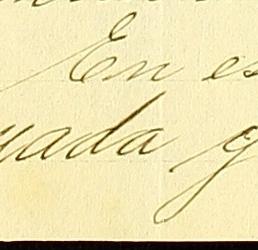 En es
uada g